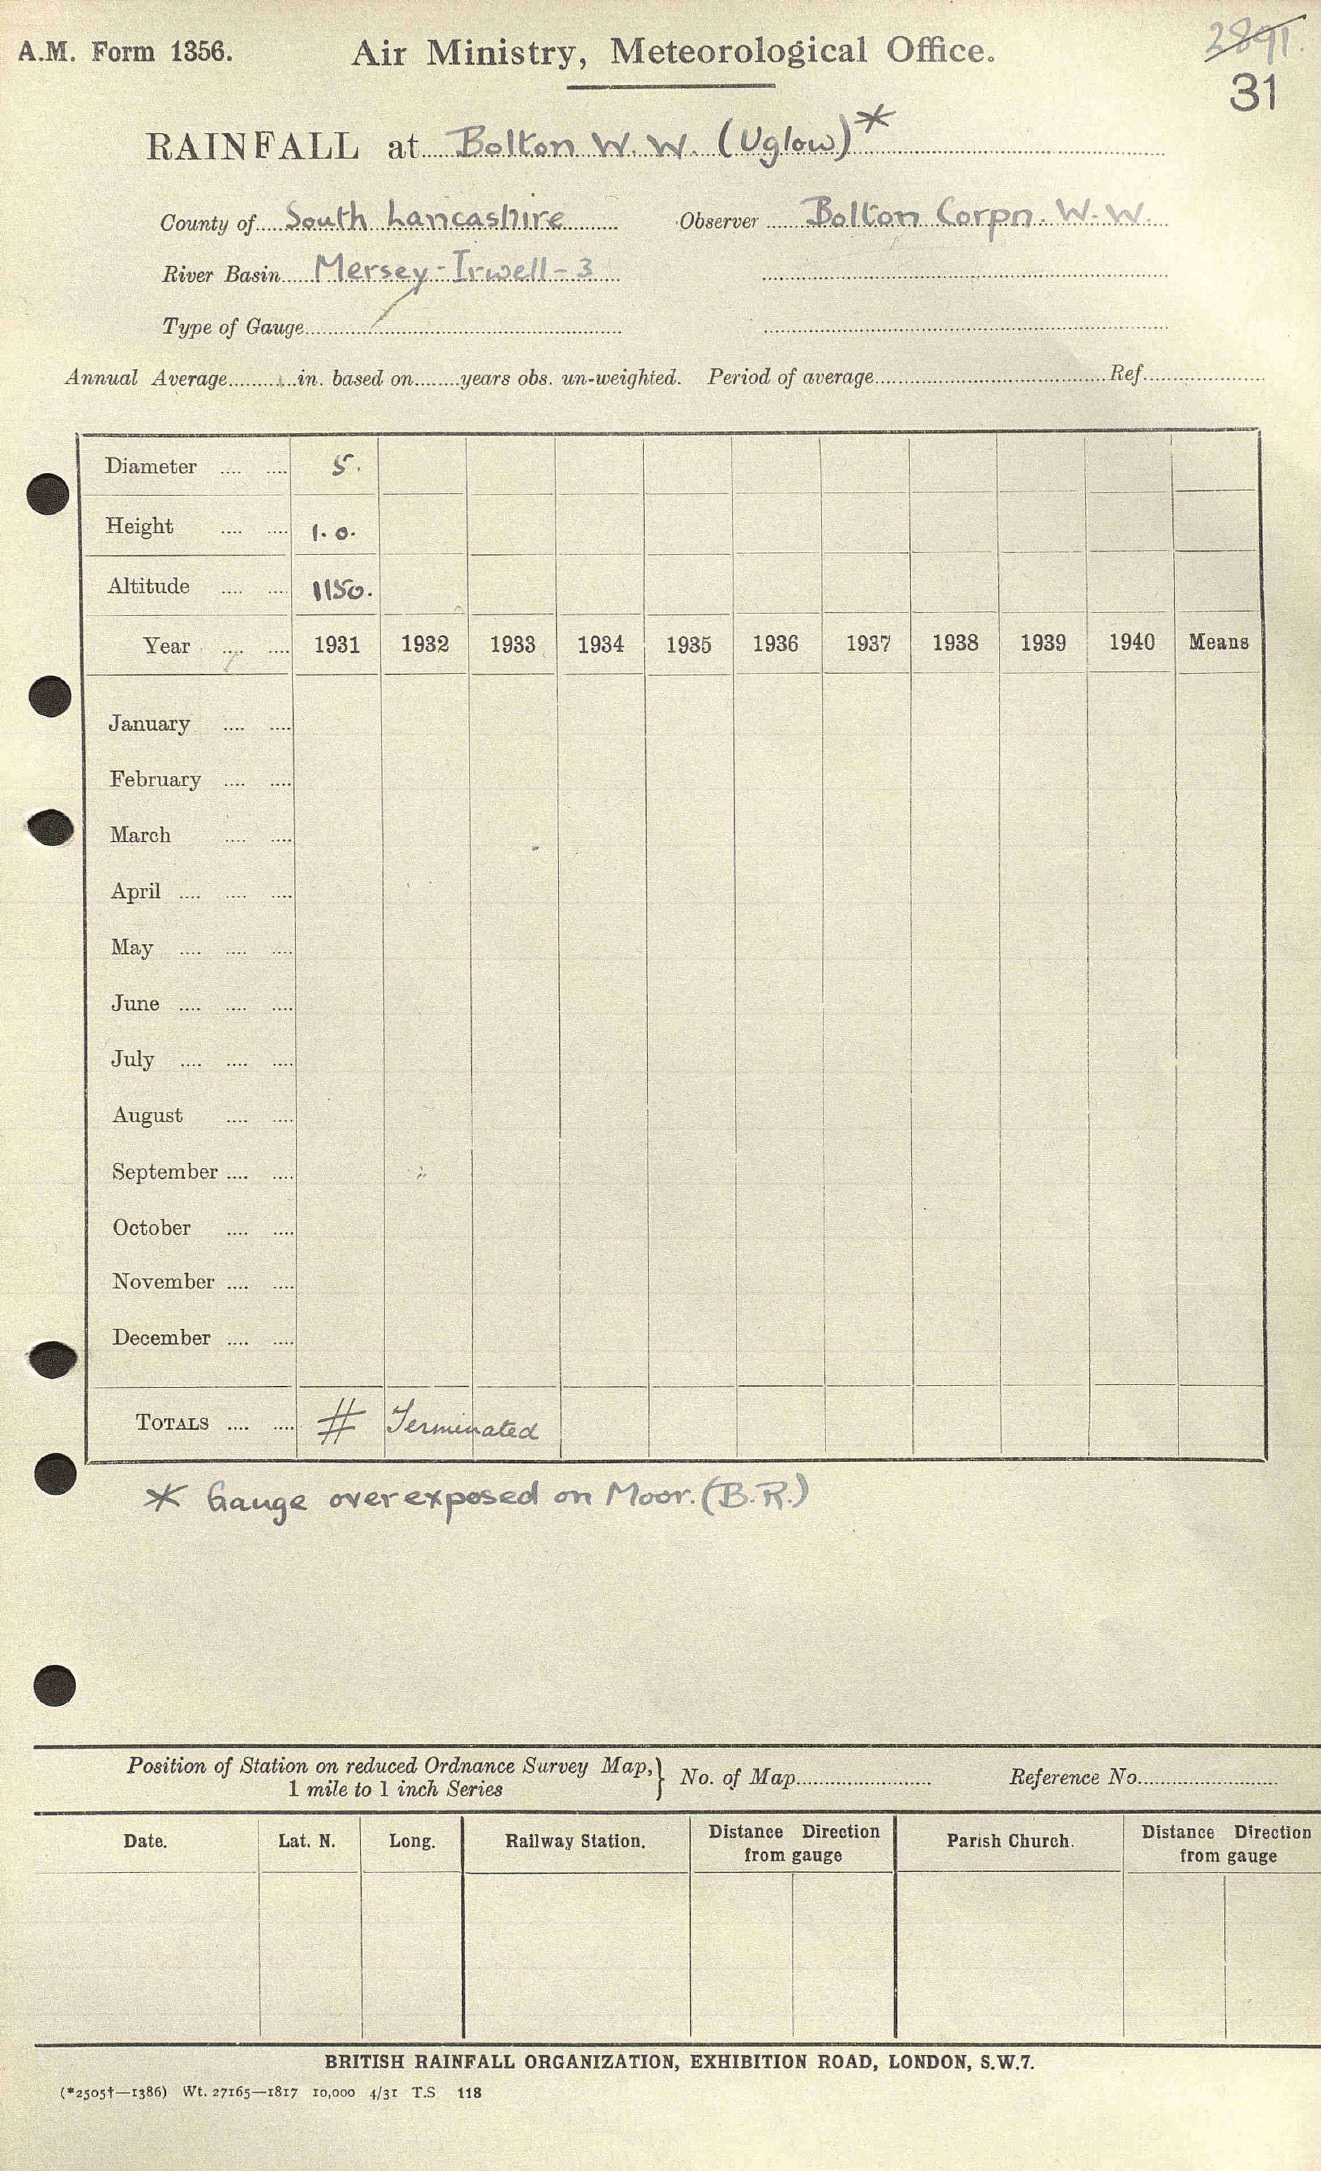 A.M. Form 1356. Air Ministry, Meteorological Office. 2891.
31
RAINFALL at Bolton W. W. (Uglow)*
County of South Lancashire Observer Bolton Corpn. W. W.
River Basin Mersey - Irwell - 3
Type of Gauge
Annual Average in. based on years obs. un-weighted. Period of average Ref
Diameter .... .... 5.
Height .... .... 1. 0.
Altitude .... .... 1150.
Year .... .... 1931 1932 1933 1934 1935 1936 1937 1938 1939 1940 Means
January .... ....
February .... ....
March .... ....
April .... .... ....
May .... .... ....
June .... .... ....
July .... .... ....
August .... ....
September .... ....
October .... ....
November .... ....
December .... ....
TOTALS .... .... # Terminated
* Gauge over exposed on Moor. (B.R.)
Position of Station on reduced Ordnance Survey Map, } No. of Map Reference No.
1 mile to 1 inch Series
Date. Lat. N. Long. Railway Station. Distance Direction from gauge Parish Church. Distance Direction from gauge
BRITISH RAINFALL ORGANIZATION, EXHIBITION ROAD, LONDON, S.W.7.
(*2505†—1386) Wt. 27165—1817 10,000 4/31 T.S 118